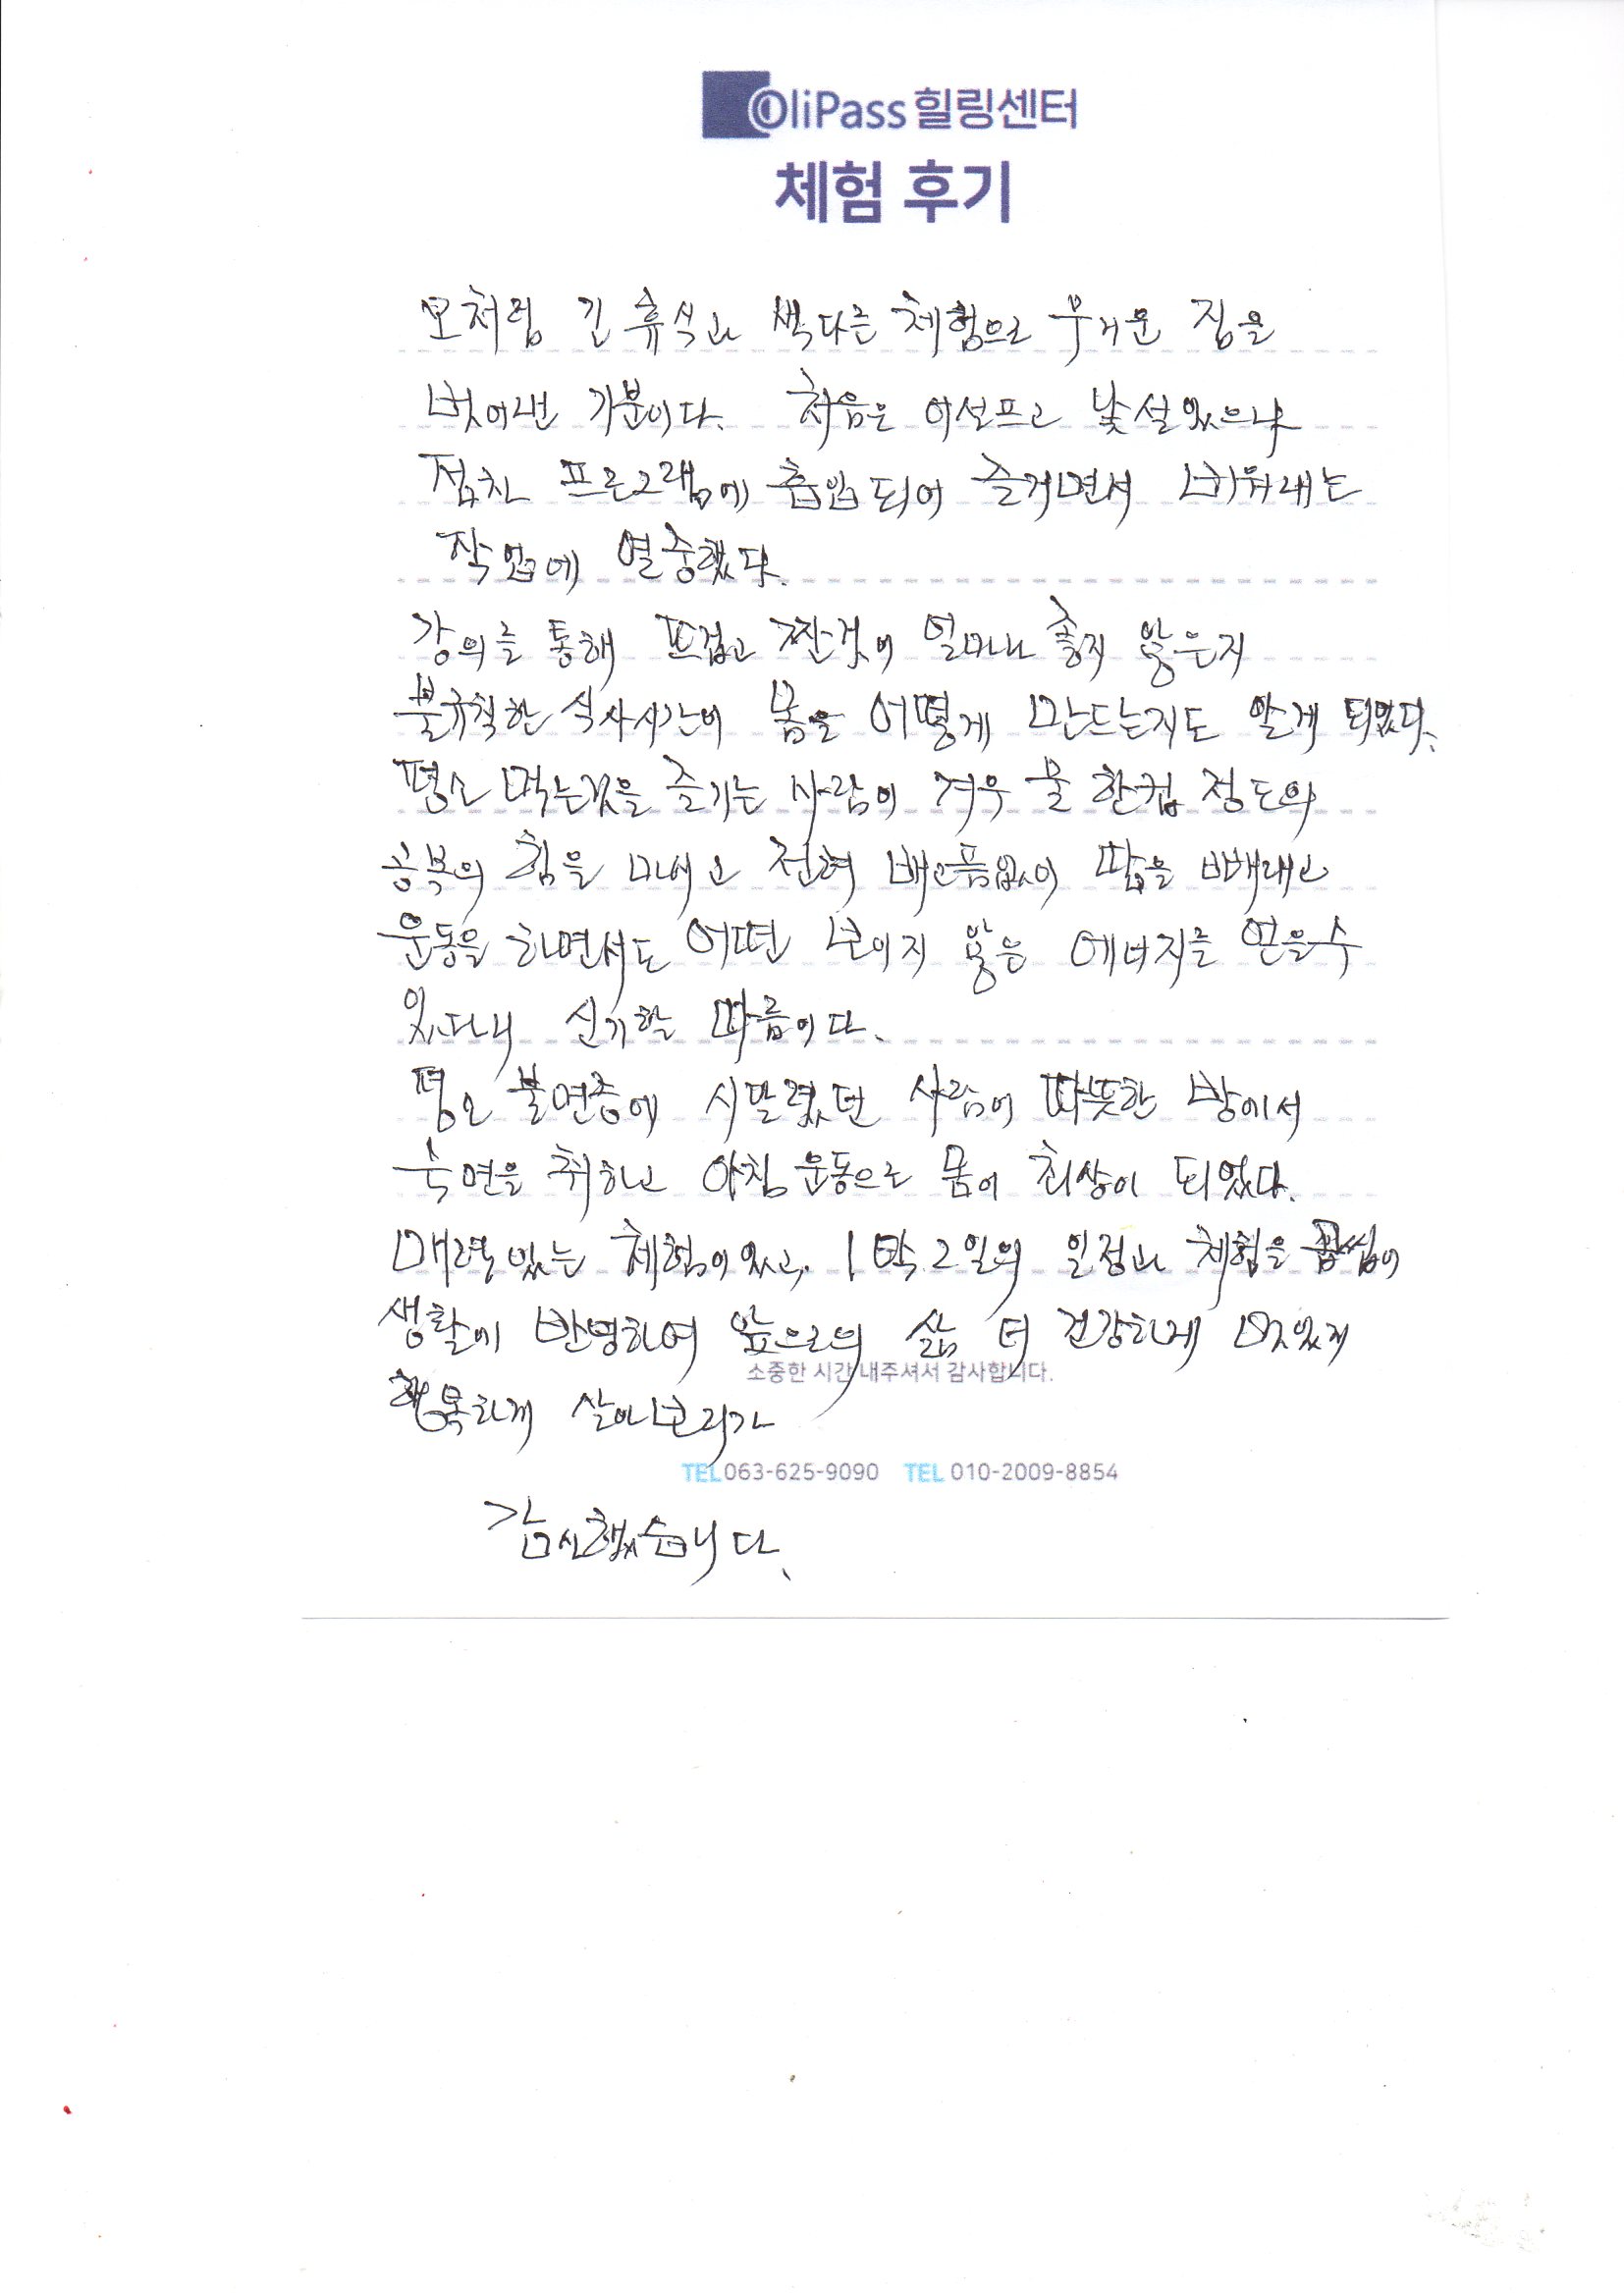 OliPass 힐링센터
체험 후기
모처럼 긴 휴식과 색다른 체험으로 무거운 짐을
벗어낸 기분이다. 처음은 어설프고 낯설었으나
점차 프로그램에 흡입되어 즐기면서 비워내는
작업에 열중했다.
강의를 통해 뜨겁고 짠것이 얼마나 좋지 않은지
불규칙한 식사시간이 몸을 어떻게 만드는지도 알게 되었다.
평소 먹는것을 즐기는 사람이 겨우 물 한컵 정도의
공복의 힘을 마시고 전혀 배고픔없이 땀을 빼내고
운동을 하면서도 어떤 보이지 않은 에너지를 얻을수
있다니 신기할 따름이다.
평소 불면증에 시달렸던 사람이 따뜻한 방에서
숙면을 취하고 아침 운동으로 몸이 최상이 되었다.
매력있는 체험이었고, 1박 2일의 일정과 체험을
생활에 반영하여 앞으로의 삶 더 건강하게 멋있게
소중한 시간 내주셔서 감사합니다.
행복하게 살아보리라
TEL 063-625-9090 TEL 010-2009-8854
감사했습니다.